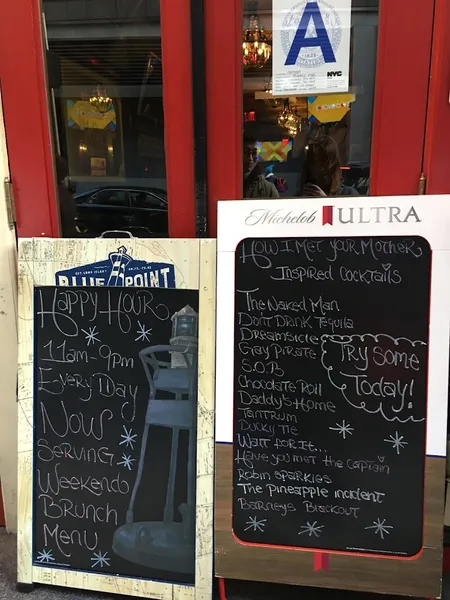 A
NYC
BLUE POINT
Happy Hour
11am-9pm
Every Day
Now
Serving
Weekend
Brunch
Menu
Michelob ULTRA
How I Met Your Mother
Inspired Cocktails
The Naked Man
Dont Drink Tequila
Dreamsicle
Gay Pirate
S.O.B
Chocolate Roll
Daddy's Home
Tantrum
Ducky Tie
Wait for it...
Have you met the captain
Robin Sparkles
The Pineapple incident
Barneys Blackout
Try Some
Today!